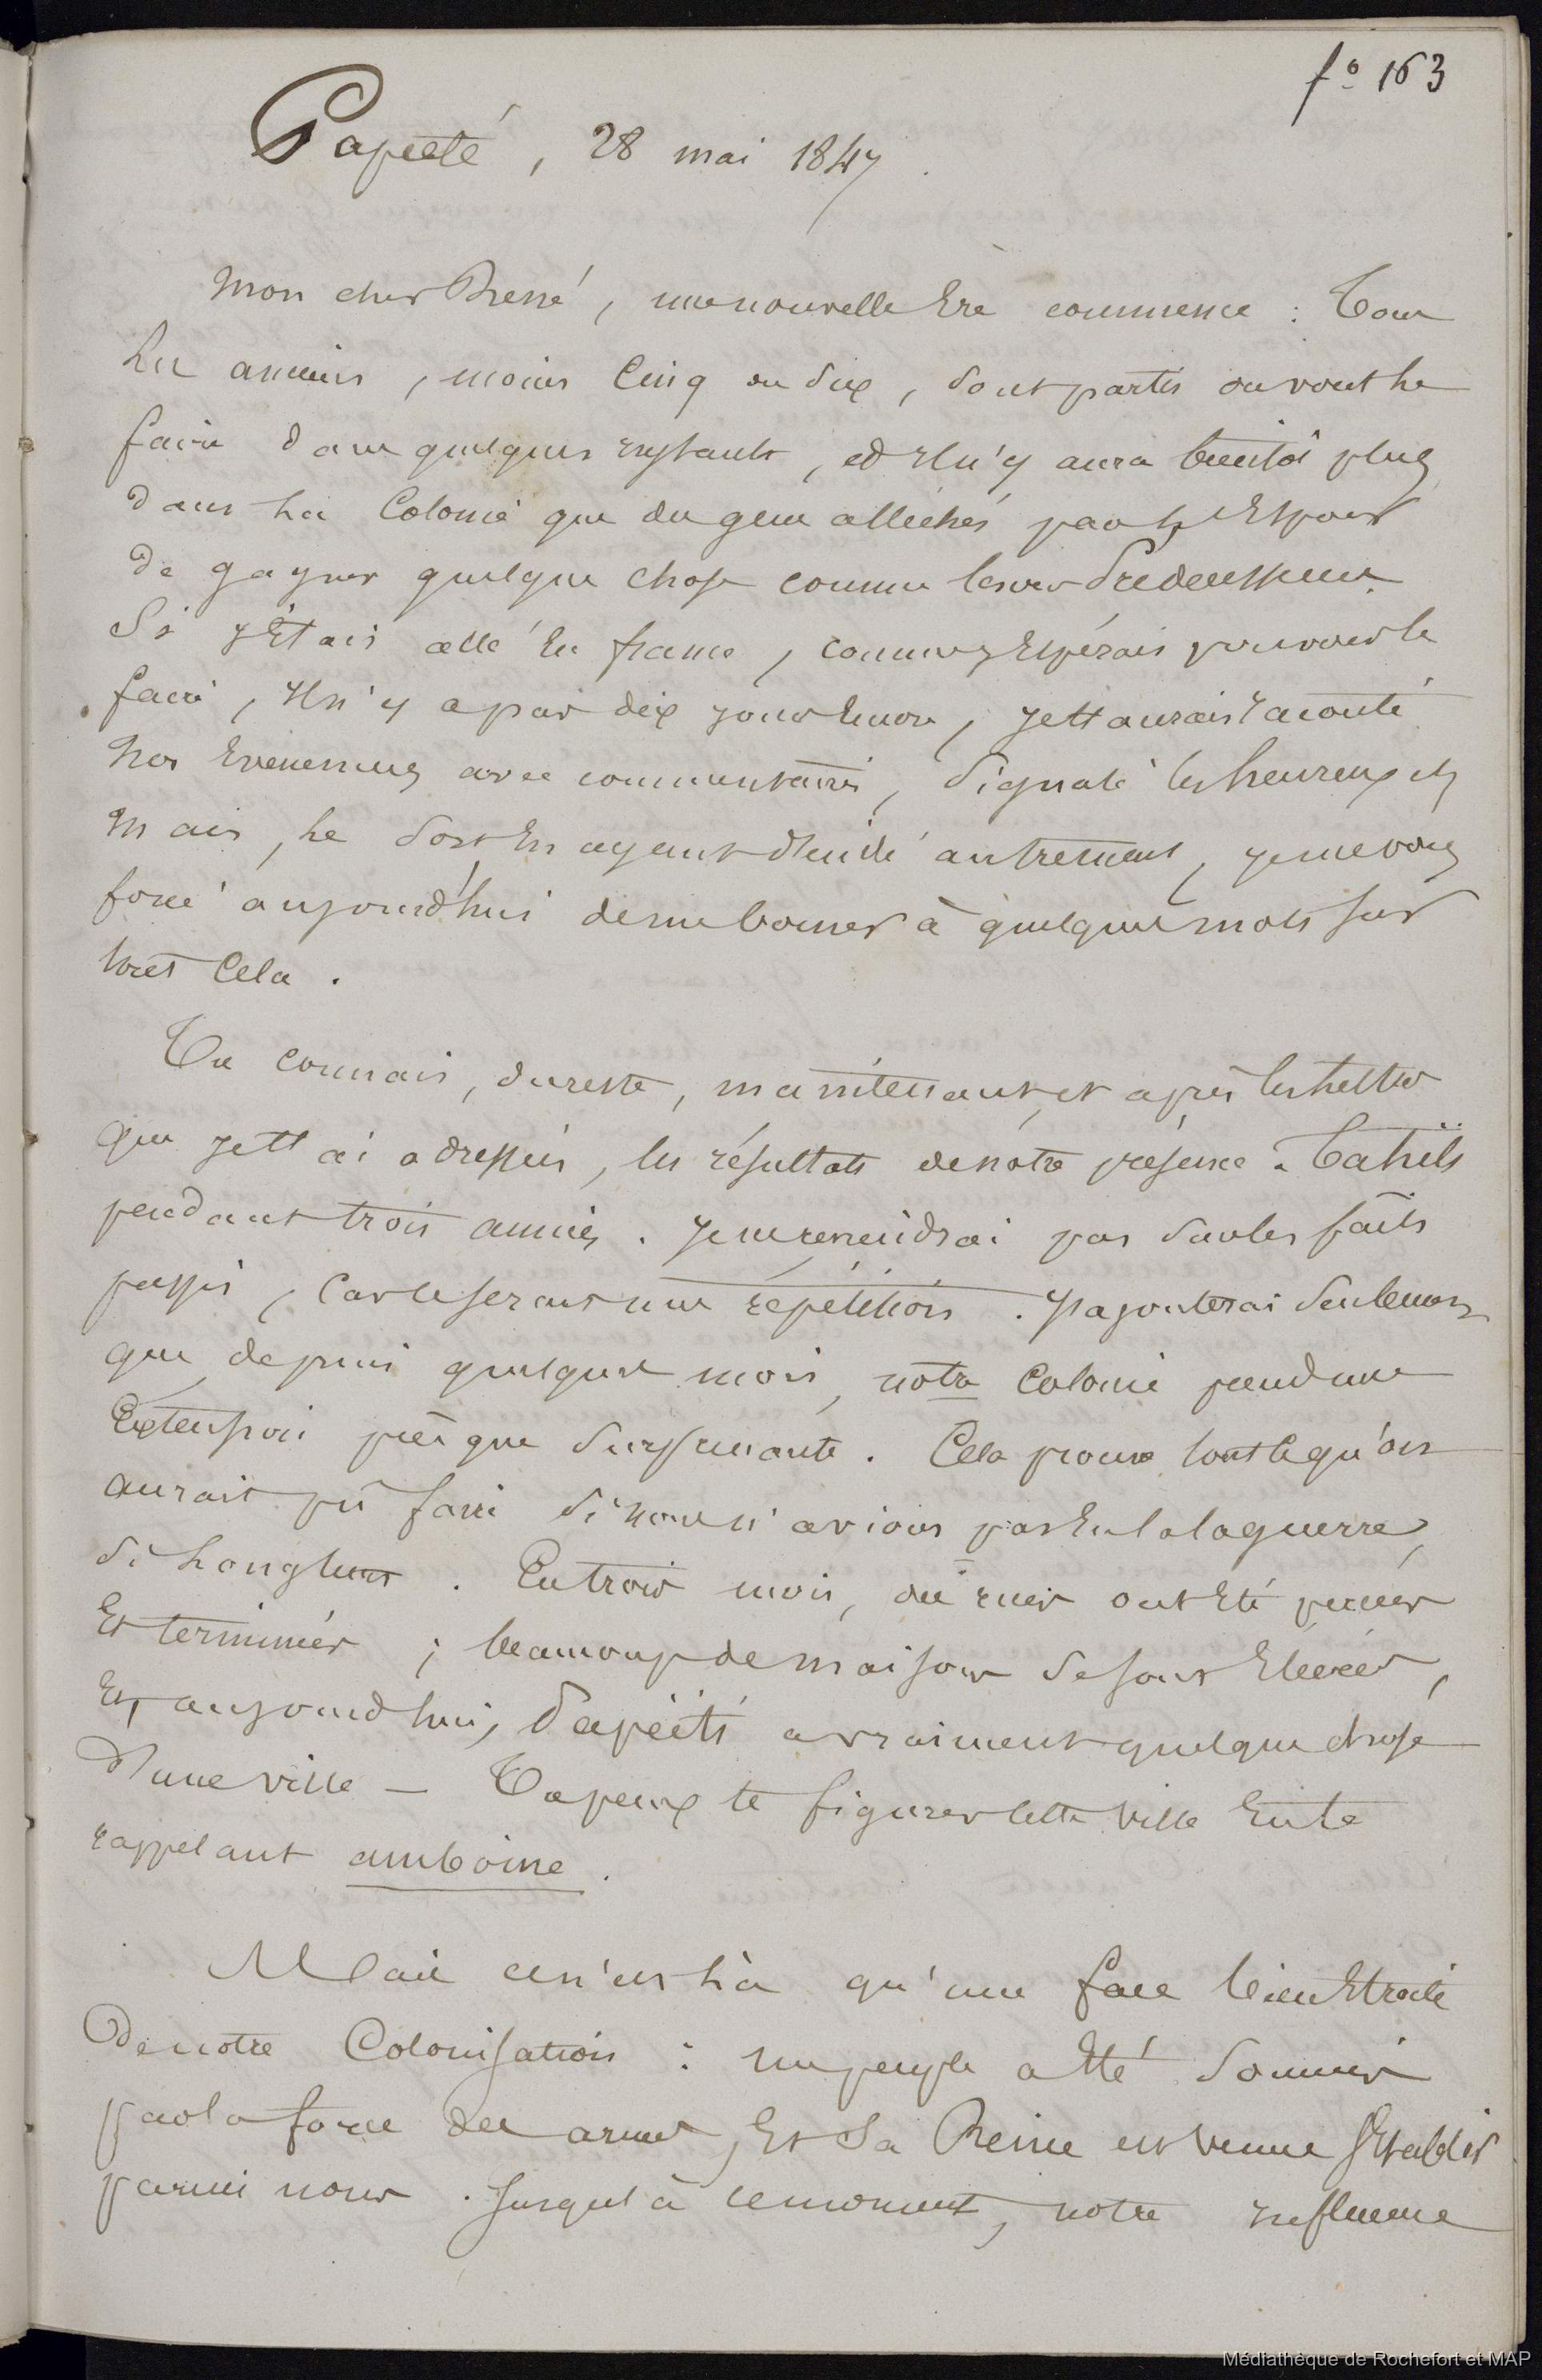 fo 163
Papeete, 28 mai 1847.
Mon cher René, une nouvelle Ere commence : Tous
les anciens, moins Cinq ou dix, sont partis ou vont le
faire dans quelques instants, et il n'y aura bientôt plus
dans la Colonie que des gens alléchés par l'Espoir
de gagner quelque chose comme leurs Prédecesseurs.
Si j'étais allé En france, comme j'Espérais pouvoir le
faire, il n'y a pas dix jours Encore, je tt aurais raconté
les Evenemens avec commentaires, Signalé les heureux etc
Mais, le Sort En ayant décidé autrement, je me vois
forcé aujourd'hui de me borner à quelques mots sur
tout Cela.
Tu connais, du reste, maintenant, et après les lettres
que je tt ai adressées, les résultats de notre présence à Tahïti
pendant trois années. Je ne reviendrai pas sur les faits
passés, Car ce serait une répétition. J'ajouterai Seulement
que depuis quelques mois, notre Colonie prend une
Extension presque Surprenante. Cela prouve tout ce qu'on
aurait pû faire Si nous n'avions pas Eu la guerre,
Si longtems. En trois mois, des rues ont Eté percées
Et terminées ; beaucoup de maisons se sont Elevées,
Et, aujourd'hui, Papéïté a vraiment quelque chose
d'une ville — Tu peux te figurer cette Ville En te
rappelant amboine.
Mais ce n'est là qu'une face bien Etroite
De notre Colonisation : un peuple a Eté Soumis
par la force des armes, Et Sa Reine est venue s'Etablir
parmi nous. Jusqu'à ce moment, notre influence
Médiathèque de Rochefort et MAP